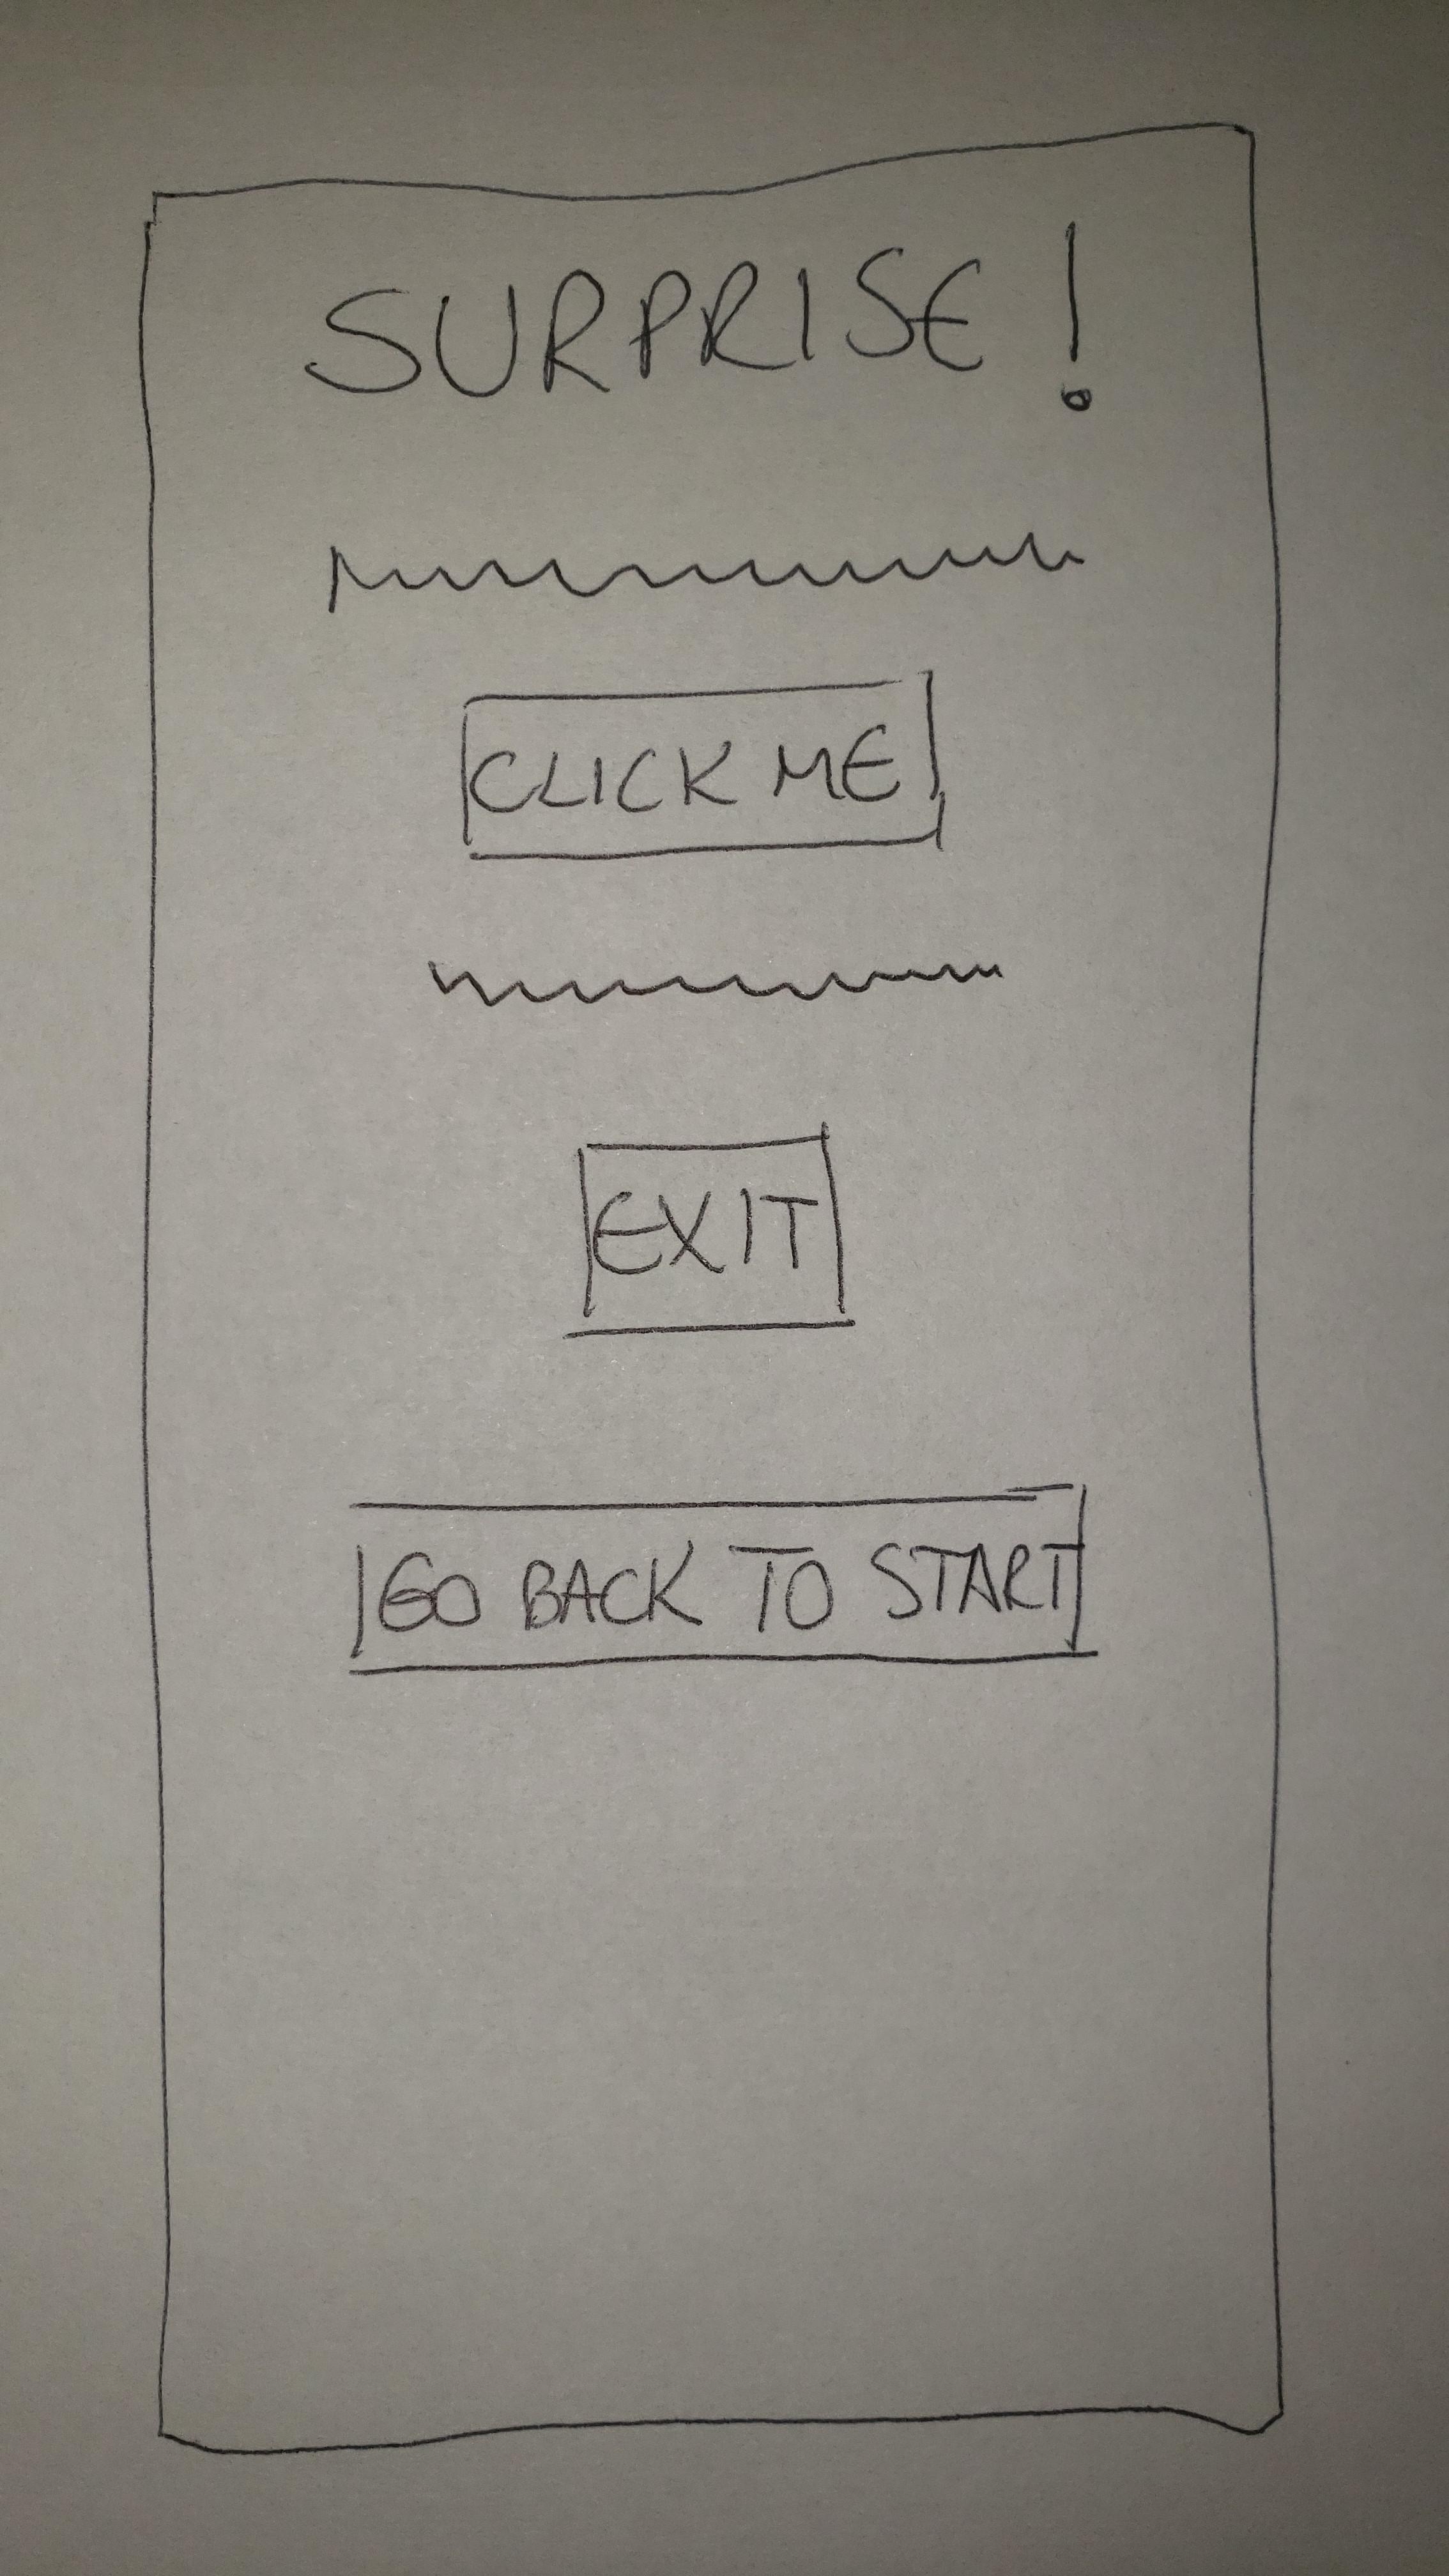 SURPRISE!
CLICK ME
EXIT
GO BACK TO START